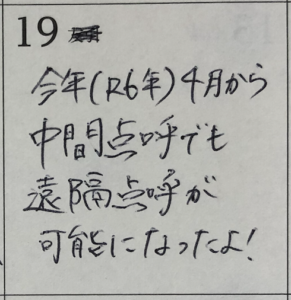 19
今年(R6年)4月から
中間点呼でも
遠隔点呼が
可能になったよ!